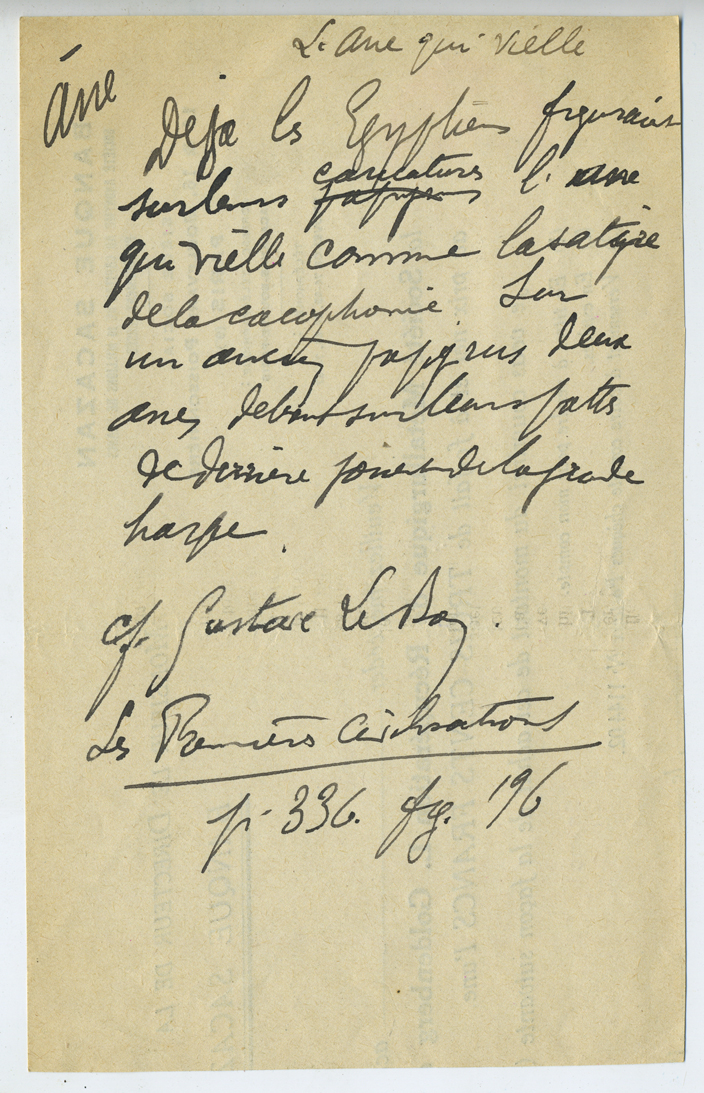 L'Ane qui vielle
âne
Déja les Egyptiens figuraient
sur leurs papyrus caricatures l'ane
qui vielle comme la satyre
de la cacophonie Sur
un ancien papyrus deux
anes debout sur leurs pattes
de derrière jouent de la grande
harpe.
cf. Gustave Le Bon.
Les Premières Civilisations
p. 336. fig. 196